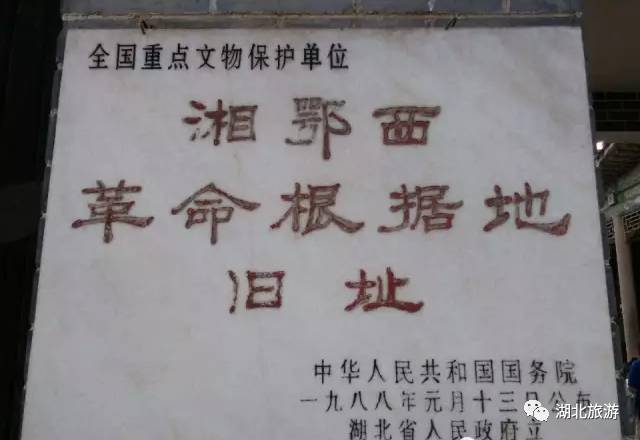 全国重点文物保护单位
湘鄂西
革命根据地
旧址
中华人民共和国国务院
一九八八年元月十三日公布
湖北省人民政府立
湖北旅游